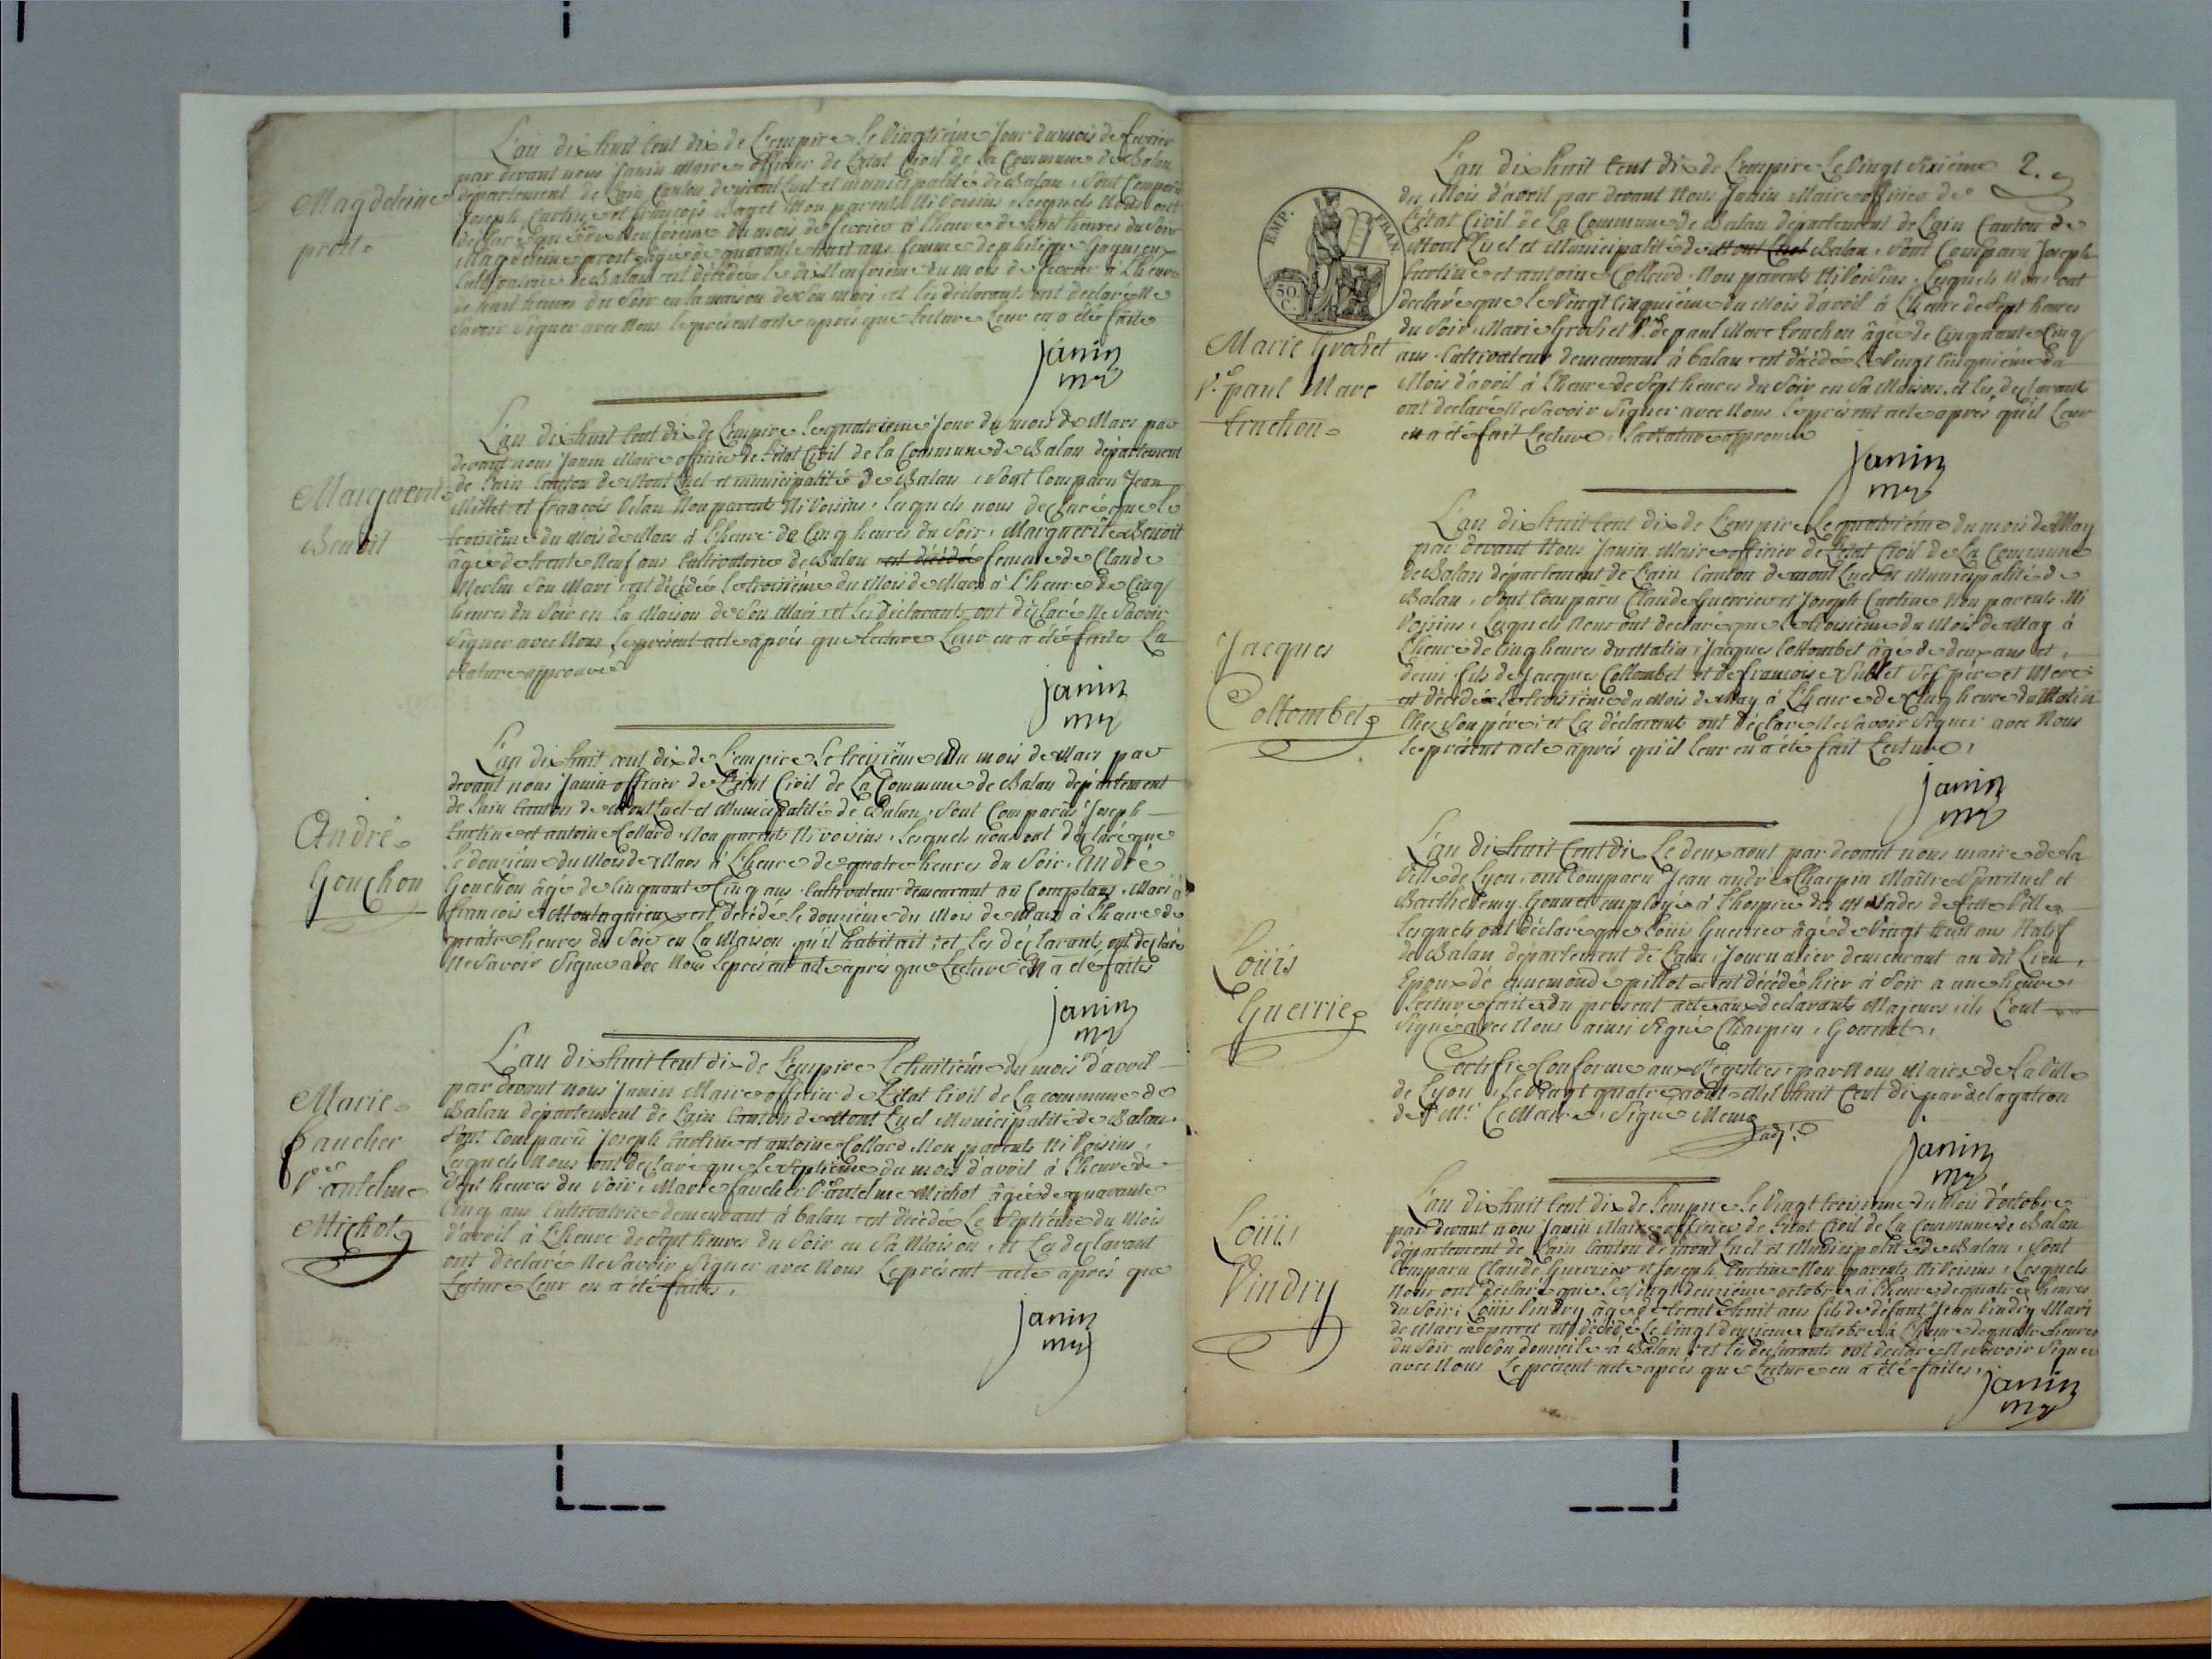 L'an dix huit cent dix de L'empire le Vingtième Jour du mois de fevrier
par devant nous Janin Maire officier de L'état Civil de la Commune de Balan
Magdeleine
département de L'ain Canton de mont Luel et municipalité de Balan, Sont Comparu
Joseph Curtine et françois Baget Non parents Ni Voisins, Lesquels Nous ont
prost
declaré que le dix Neuvième du mois de fevrier à L'heure de huit heures du Soir
Magdeleine prost agée de quarante huit ans femme de
cultivatrice de Balan est décédée le dix Neuvième du mois de fevrier à L'heure
de huit heures du Soir en la maison de Son mari, et les déclarants ont declaré Ne
Savoir Signer avec Nous le présent acte après que Lecture Leur en a été faite
Janin
mre
L'an dix huit cent dix de L'empire le quatrième Jour du mois de Mars par
devant nous Janin Maire officier de L'état Civil de la Commune de Balan département
de L'ain Canton de Mont Luel et municipalité de Balan, Sont Comparu Jean
Marguerite
Millet et françois Vilan Non parents Ni Voisins, Lesquels nous declaré que le
troisième du mois de Mars à L'heure de Cinq heures du Soir, Marguerite Benoit
Benoit
âgée de trente Neuf ans Cultivatrice de Balan est décédée femme de Claude
Merlin Son Mari est décédée le troisième du Mois de Mars à L'heure de Cinq
heures du Soir en la Maison de Son Mari et les déclarants ont déclaré Ne Savoir
Signer avec Nous le présent acte après que Lecture Leur en a été faite La
Rature approuvé
Janin
mre
L'an dix huit cent dix de L'empire le treizième du mois de Mars par
devant nous Janin officier de L'état Civil de La Commune de Balan département
de L'ain Canton de Mont Luel et Municipalité de Balan, Sont Comparus Joseph
André
Curtine et antoine Collard, Non parents Ni Voisins, Lesquels nous ont declaré que
Le douzième du Mois de Mars à L'heure de quatre heures du Soir, André
Gonchon
Gonchon âgé de Cinquante Cinq ans Cultivateur demeurant au Mari à
françoise Montagnieux est décédé le douzième du Mois de Mars à L'heure de
quatre heures du Soir en La Maison qu'il habitait, et les déclarants ont declaré
Ne Savoir Signer avec Nous le présent acte après que Lecture en a été faite
Janin
mre
L'an dix huit cent dix de L'empire le huitième du mois d'avril
par devant nous Janin Maire officier de L'état Civil de la commune de
Marie
Balan département de L'ain Canton de Mont Luel Municipalité de Balan
faucher
Sont Comparu Joseph Curtine et antoine Collard Non parents Ni Voisins,
Lesquels Nous ont declaré que le Septième du mois d'avril à L'heure de
Ve antelme
Sept heures du Soir, Marie faucher Ve antelme Michot âgée de quarante
Michot
Cinq ans Cultivatrice demeurant à balan est décédée Le Septième du Mois
d'avril à L'heure de Sept heures du Soir en Sa Maison, et Les declarant
ont déclaré Ne Savoir Signer avec Nous Le présent acte après que
Lecture Leur en a été faite,
Janin
mre
2.
L'an dix huit cent dix de L'empire Le Vingt Sixième
du Mois d'avril par devant Nous Janin Maire officier de
L'état Civil de La Commune de Balan département de L'ain Canton de
EMP. FRAN
Mont Luel et Municipalité de Mont Luel Balan, Sont Comparu Joseph
Curtine et antoine Collard Non parents Ni Voisins, Lesquels Nous ont
50
C.
declaré que le Vingt Cinquième du Mois d'avril à L'heure de Sept heures
du Soir Marie Grochet Ve de paul Marc truchon âgée de Cinquante Cinq
Marie Grochet
ans Cultivateur demeurant à balan est décédée Le Vingt Cinquième du
Ve paul Marc
Mois d'avril à L'heure de Sept heures du Soir en Sa Maison, et Les declarant
truchon
ont declaré Ne Savoir Signer avec Nous Le présent acte après qu'il Leur
en a été fait Lecture, La Rature approuvée
Janin
mre
L'an dix huit cent dix de L'empire Le quatrième du mois de May
par devant Nous Janin Maire officier de L'état Civil de La Commune
de Balan département de L'ain Canton de mont Luel et Municipalité de
Balan, Sont Comparu Claude Guerrier et Joseph Curtine Non parents Ni
Voisins, Lesquels Nous ont declaré que Le troisième du Mois de May à
Jacques
L'heure de Cinq heures du Matin, Jacques Collombet âgé de deux ans et
demi fils de Jacques Collombet et de françoise Sublet Ses père et Mere
Collombet
est décédé Le troisième du Mois de May à L'heure de Cinq heures du Matin
Chez Son père, et Les déclarants ont déclaré Ne Savoir Signer avec Nous
Le présent acte après qu'il leur en a été fait Lecture,
Janin
mre
L'an dix huit Cent dix Le deux aout par devant nous maire de la
Ville de Lyon, ont Comparu Jean andré Charpin Maître Spirituel et
Barthelemy Gonnet employé à L'hospice des Malades de Cette Ville
Lesquels ont déclaré que Loüis Guerrier âgé de Vingt huit ans Natif
Loüis
de Balan département de L'ain, Journalier demeurant au dit Lieu,
Guerrier
Epoux de ennemonde pillot est décédé hier à Soir a une heure
Lecture faite du présent acte aux declarants Majeurs, ils L'ont
Signé avec Nous ainsi Signé Charpin, Gonnet,
Certifié Conforme aux Registres, par Nous Maire de La Ville
de Lyon, Le Vingt quatre aout Mil huit Cent Dix par délagation
de Mr. Le Maire, Signé
adj.t
Janin
mre
L'an dix huit Cent dix de L'empire Le Vingt troisieme du Mois d'octobre
par devant nous Janin Maire officier de L'état Civil de La Commune de Balan
Loüis
département de L'ain Canton de mont Luel et Municipalité de Balan, Sont
Comparu Claude Guerrier et Joseph Curtine Non parents Ni Voisins, Lesquels
Vindry
Nous ont declaré que le Vingt deuxieme octobre à L'heure de quatre heures
du Soir, Loüis Vindry âgé de trente huit ans fils de défunt Jean Vindry Mari
de Marie perret est décédé Le Vingt deuxieme octobre à L'heure de quatre heures
du Soir en Son domicile à Balan, et les declarants ont declaré Ne Savoir Signer
avec Nous Le présent acte après que Lecture en a été faite,
Janin
mre